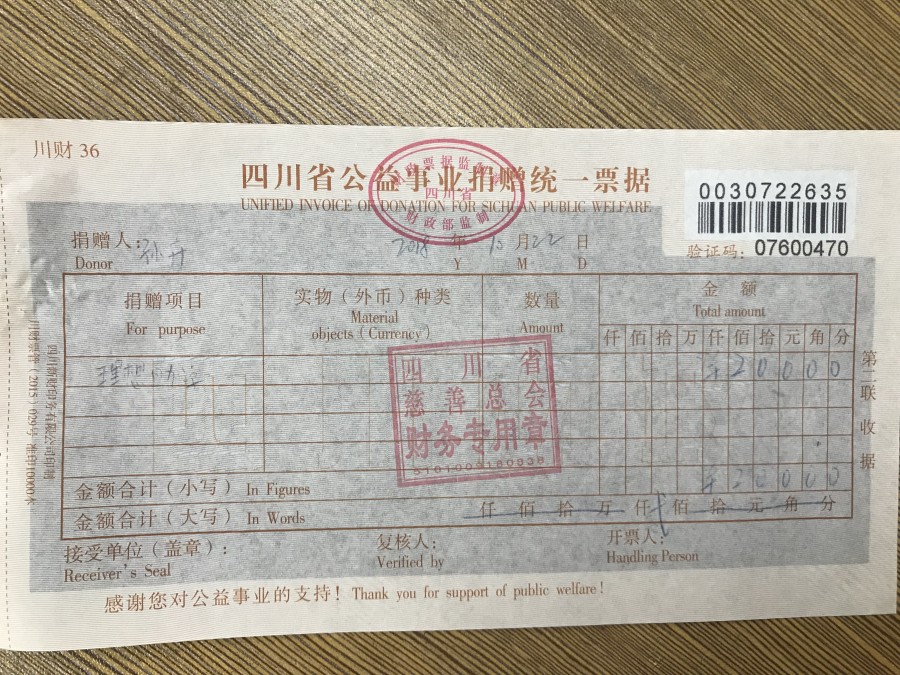 川财 36
四川省公益事业捐赠统一票据
UNIFIED INVOICE OF DONATION FOR SICHUAN PUBLIC WELFARE
财政票据监制章
四川省
财政部监制
0030722635
验证码：07600470
捐赠人：
Donor
2018 年 10 月 22 日
Y M D
捐赠项目
For purpose
实物（外币）种类
Material
objects（Currency）
数量
Amount
金额
Total amount
仟 佰 拾 万 仟 佰 拾 元 角 分
¥ 2 0 0 0 0
四川省
慈善总会
财务专用章
5101000180038
金额合计（小写） In Figures ¥ 2 0 0 0 0
金额合计（大写） In Words 仟 佰 拾 万 仟 佰 拾 元 角 分
接受单位（盖章）：
Receiver's Seal
复核人：
Verified by
开票人：
Handling Person
感谢您对公益事业的支持！ Thank you for support of public welfare！
第二联 收据